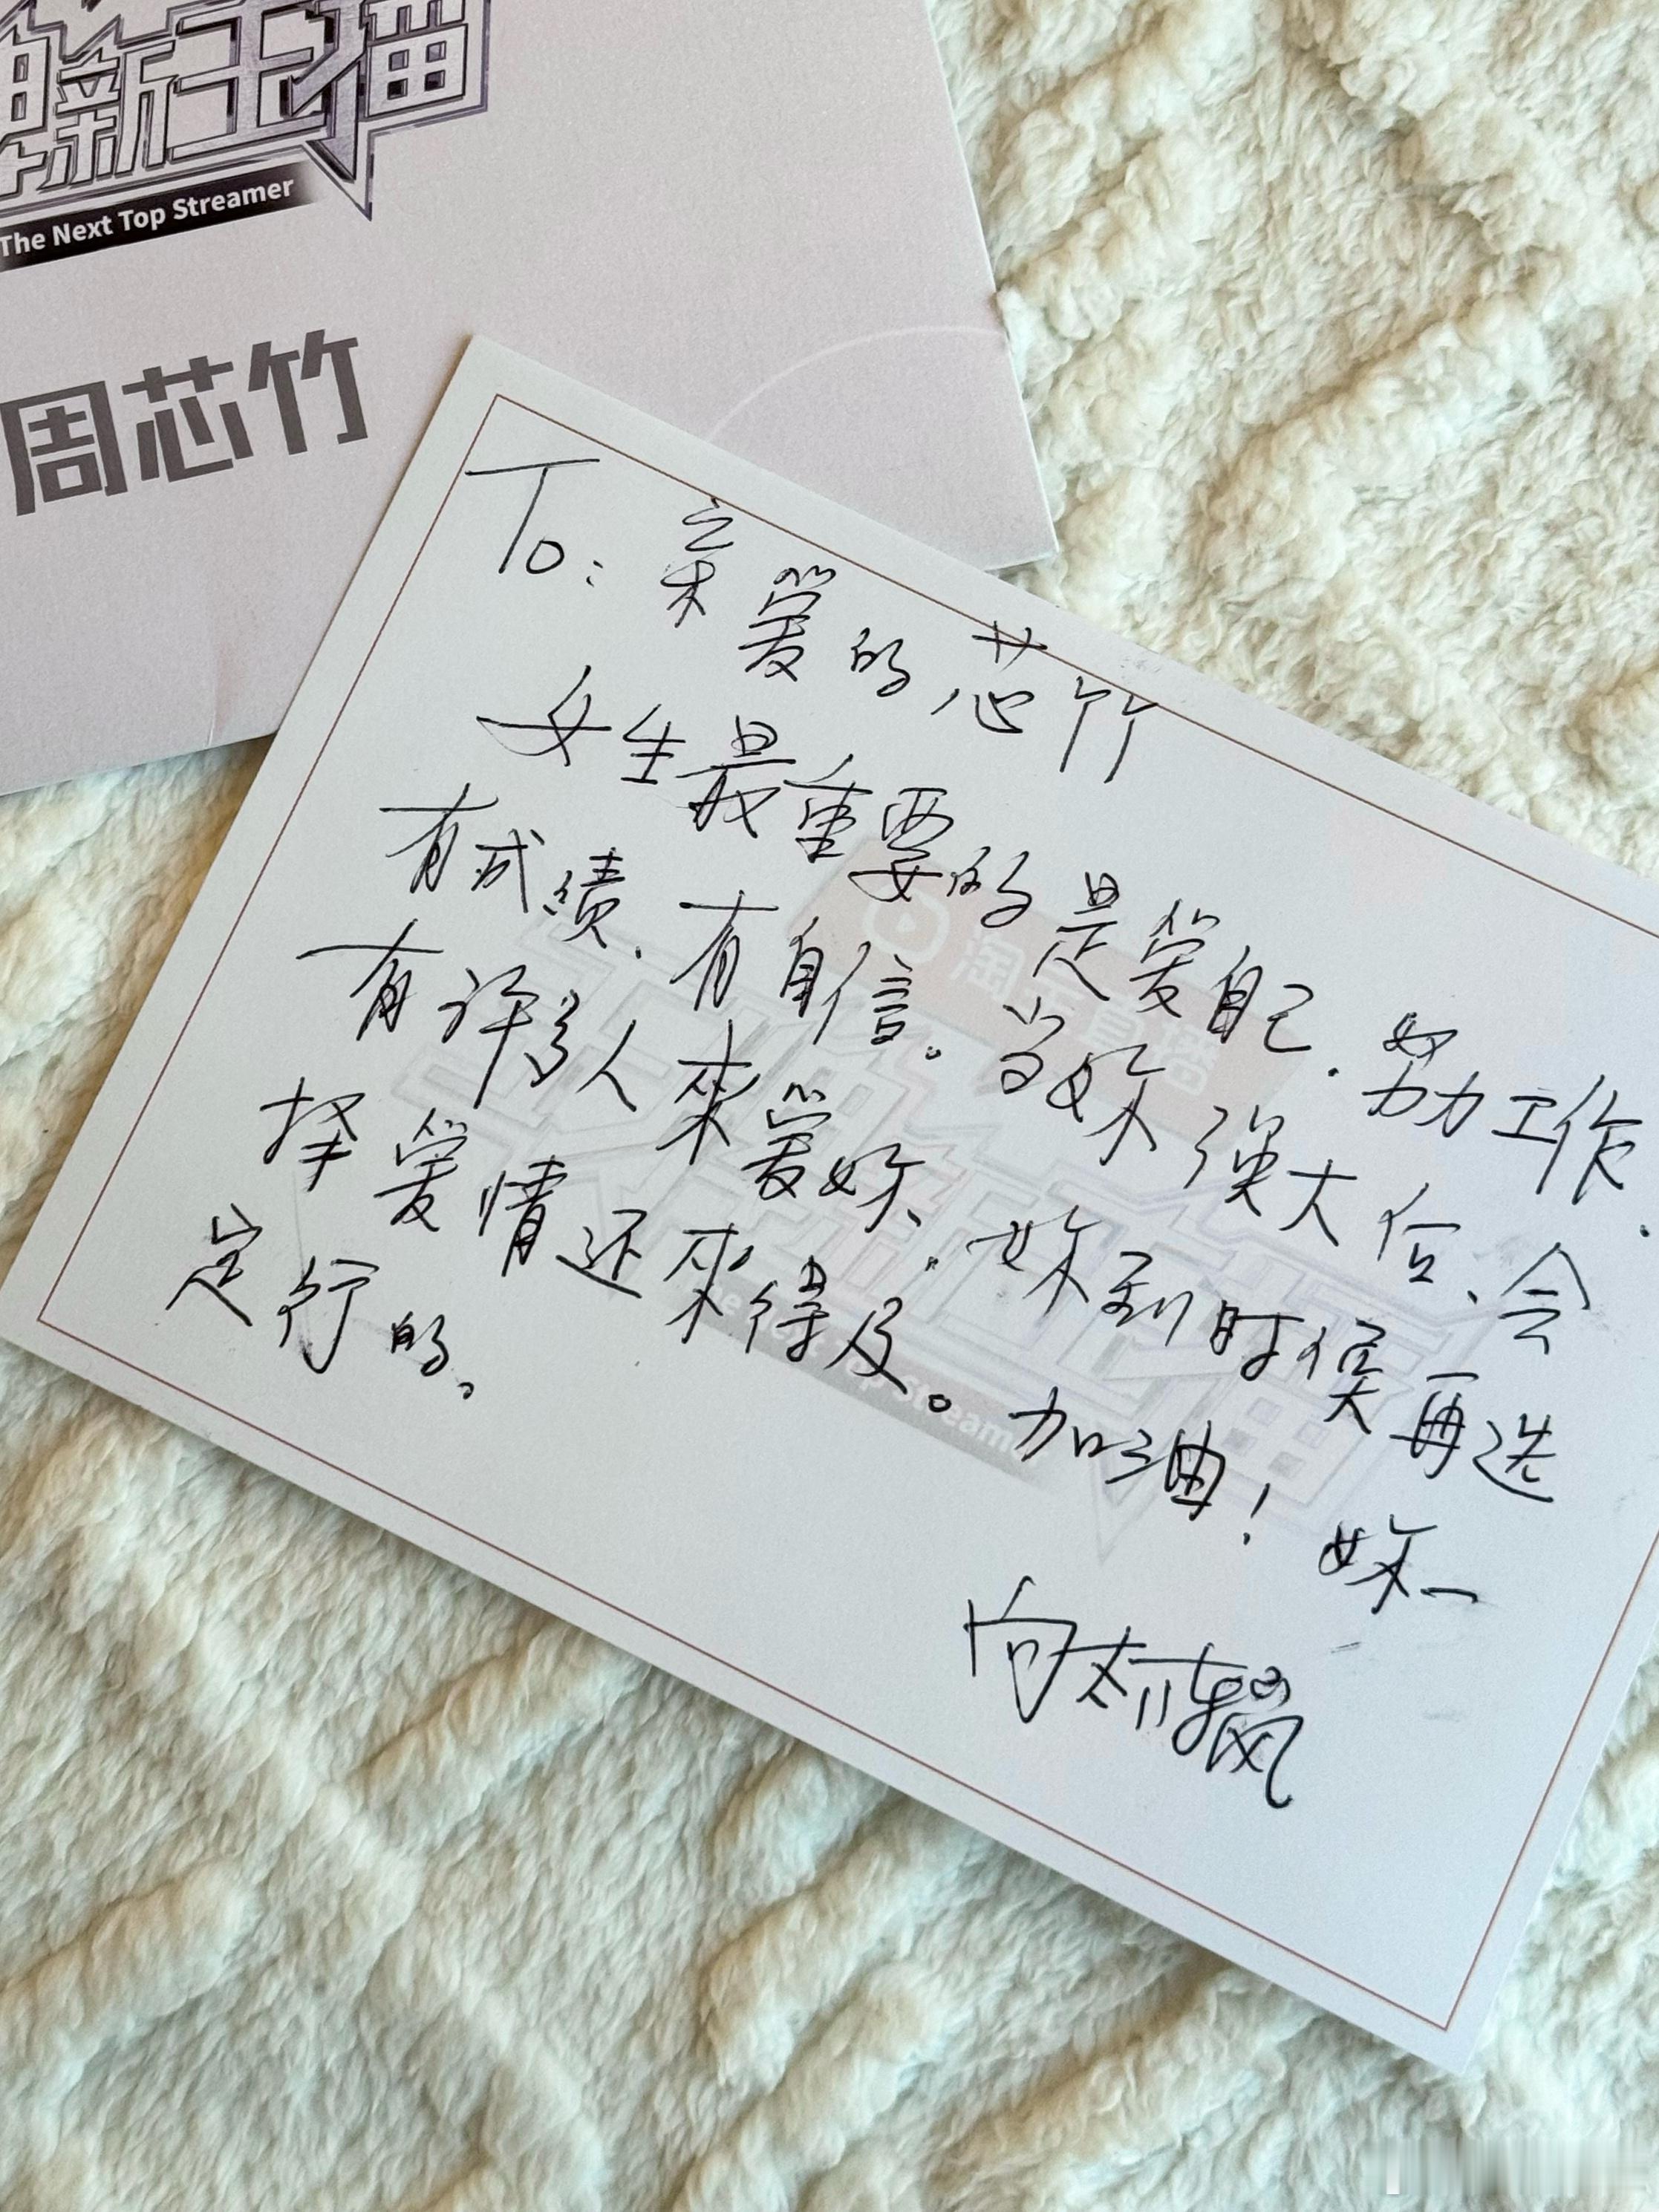 新主播
The Next Top Streamer
周芯竹
To:亲爱的芯竹
女生最重要的是爱自己.努力工作.
有成绩.有自信。当妳强大后、会
有许多人來爱妳.妳到时候再选
择爱情还來得及。加油!妳一
定行的。
向太
淘宝直播